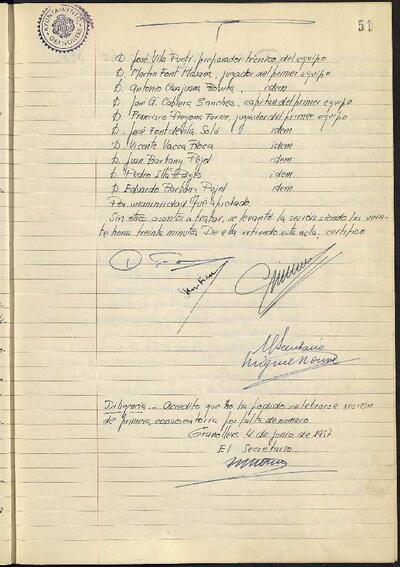 AYUNTAMIENTO
GRANOLLERS
51
D. José Vila Fortí, preparador técnico del equipo
D. Martin Font Masana, jugador del primer equipo
D. Antonio Canjuana Rovira, idem
D. José A. Cabrera Sanchez, capitan del primer equipo
D. Francisco Fregona Ferrer, jugador del primer equipo
D. José Fontdevila Solá idem
D. Vicente Vacca Roca idem
D. Juan Barbany Pujol idem
D. Pedro idem
D. Eduardo Barbany Pujol idem
Por unanimidad fué aprobado.
Sin otros asuntos a tratar, se levantó la sesión siendo las vein-
te horas treinta minutos De ella extiendo esta acta, certifico
Diligencia.- Acredito que no ha podido celebrarse sesión
de primera convocatoria por falta de número.
Granollers 4 de junio de 1957
El Secretario